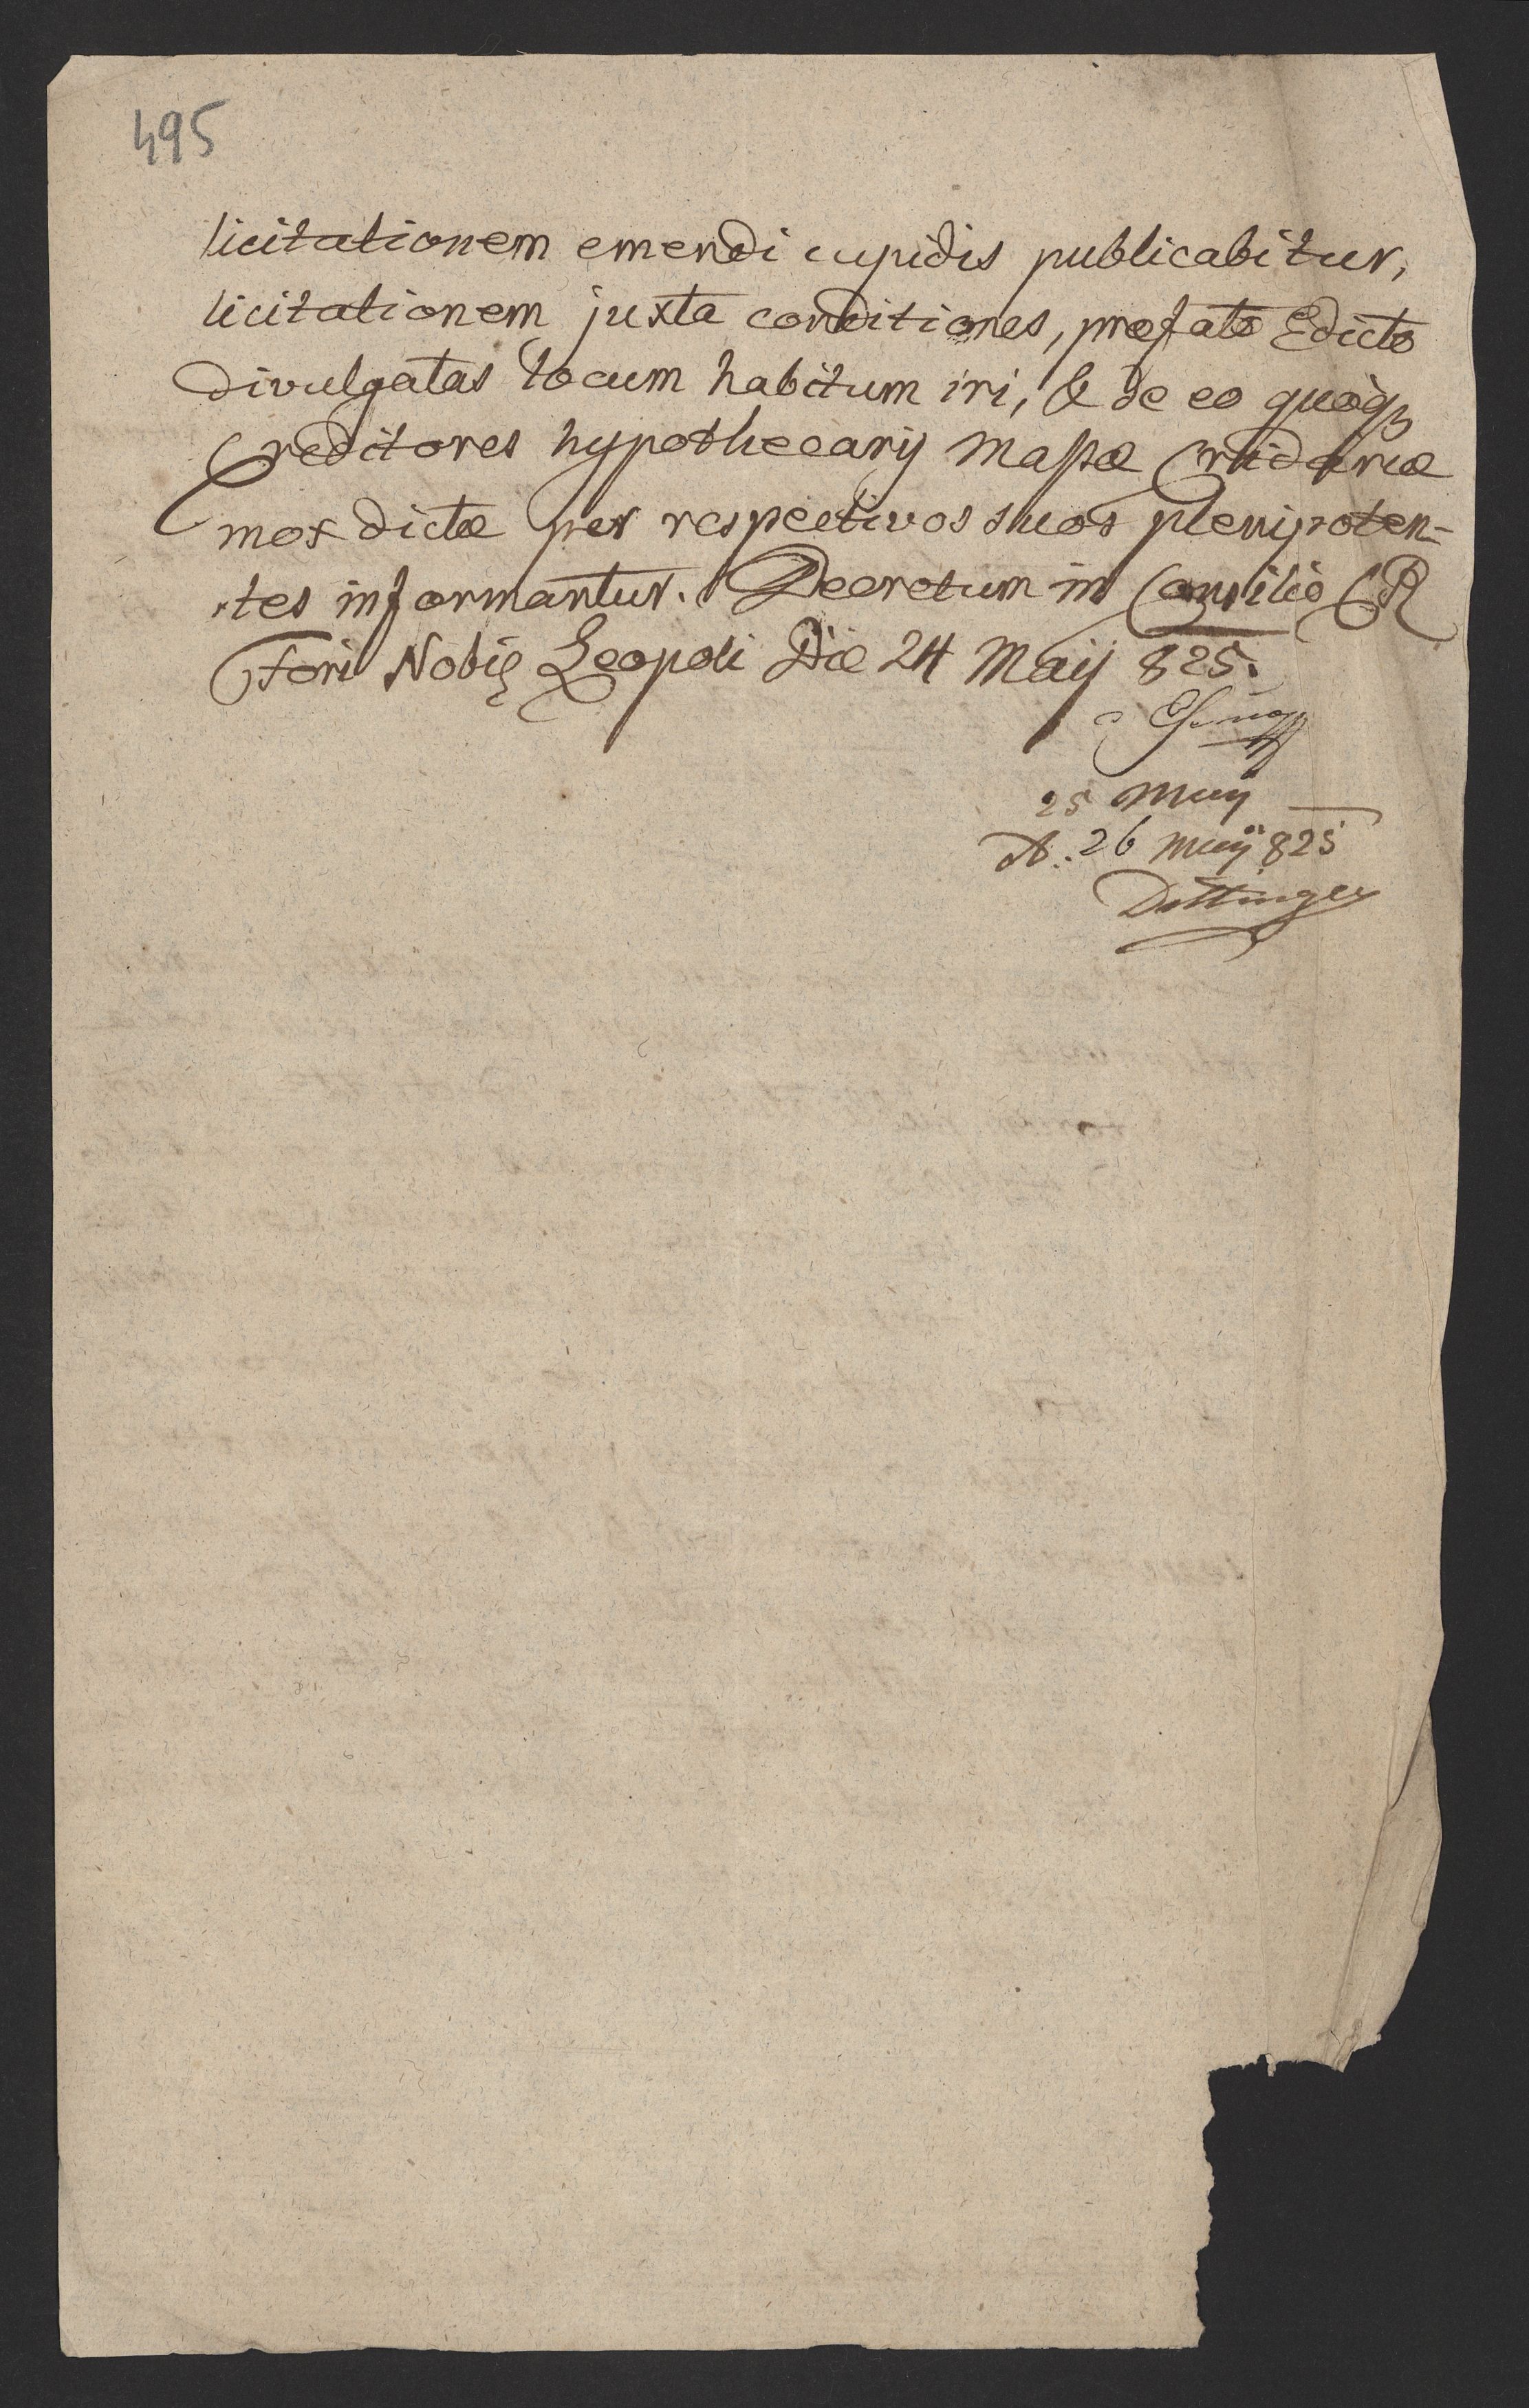 495
licitationem emendi cupidis publicabitur,
licitationem juxta conditiones, præfato Edicto
divulgatas locum habitum iri, & de eo quoq3
Creditores hypothecarij Massæ Cridariæ
mox dictæ per respectivos suos plenipoten=
=tes informantur. Decretum in Consilio CR
Fori Nobię Leopoli Die 24 Maij 825.
25 Maij
A: 26 Maij 825
Dittinger